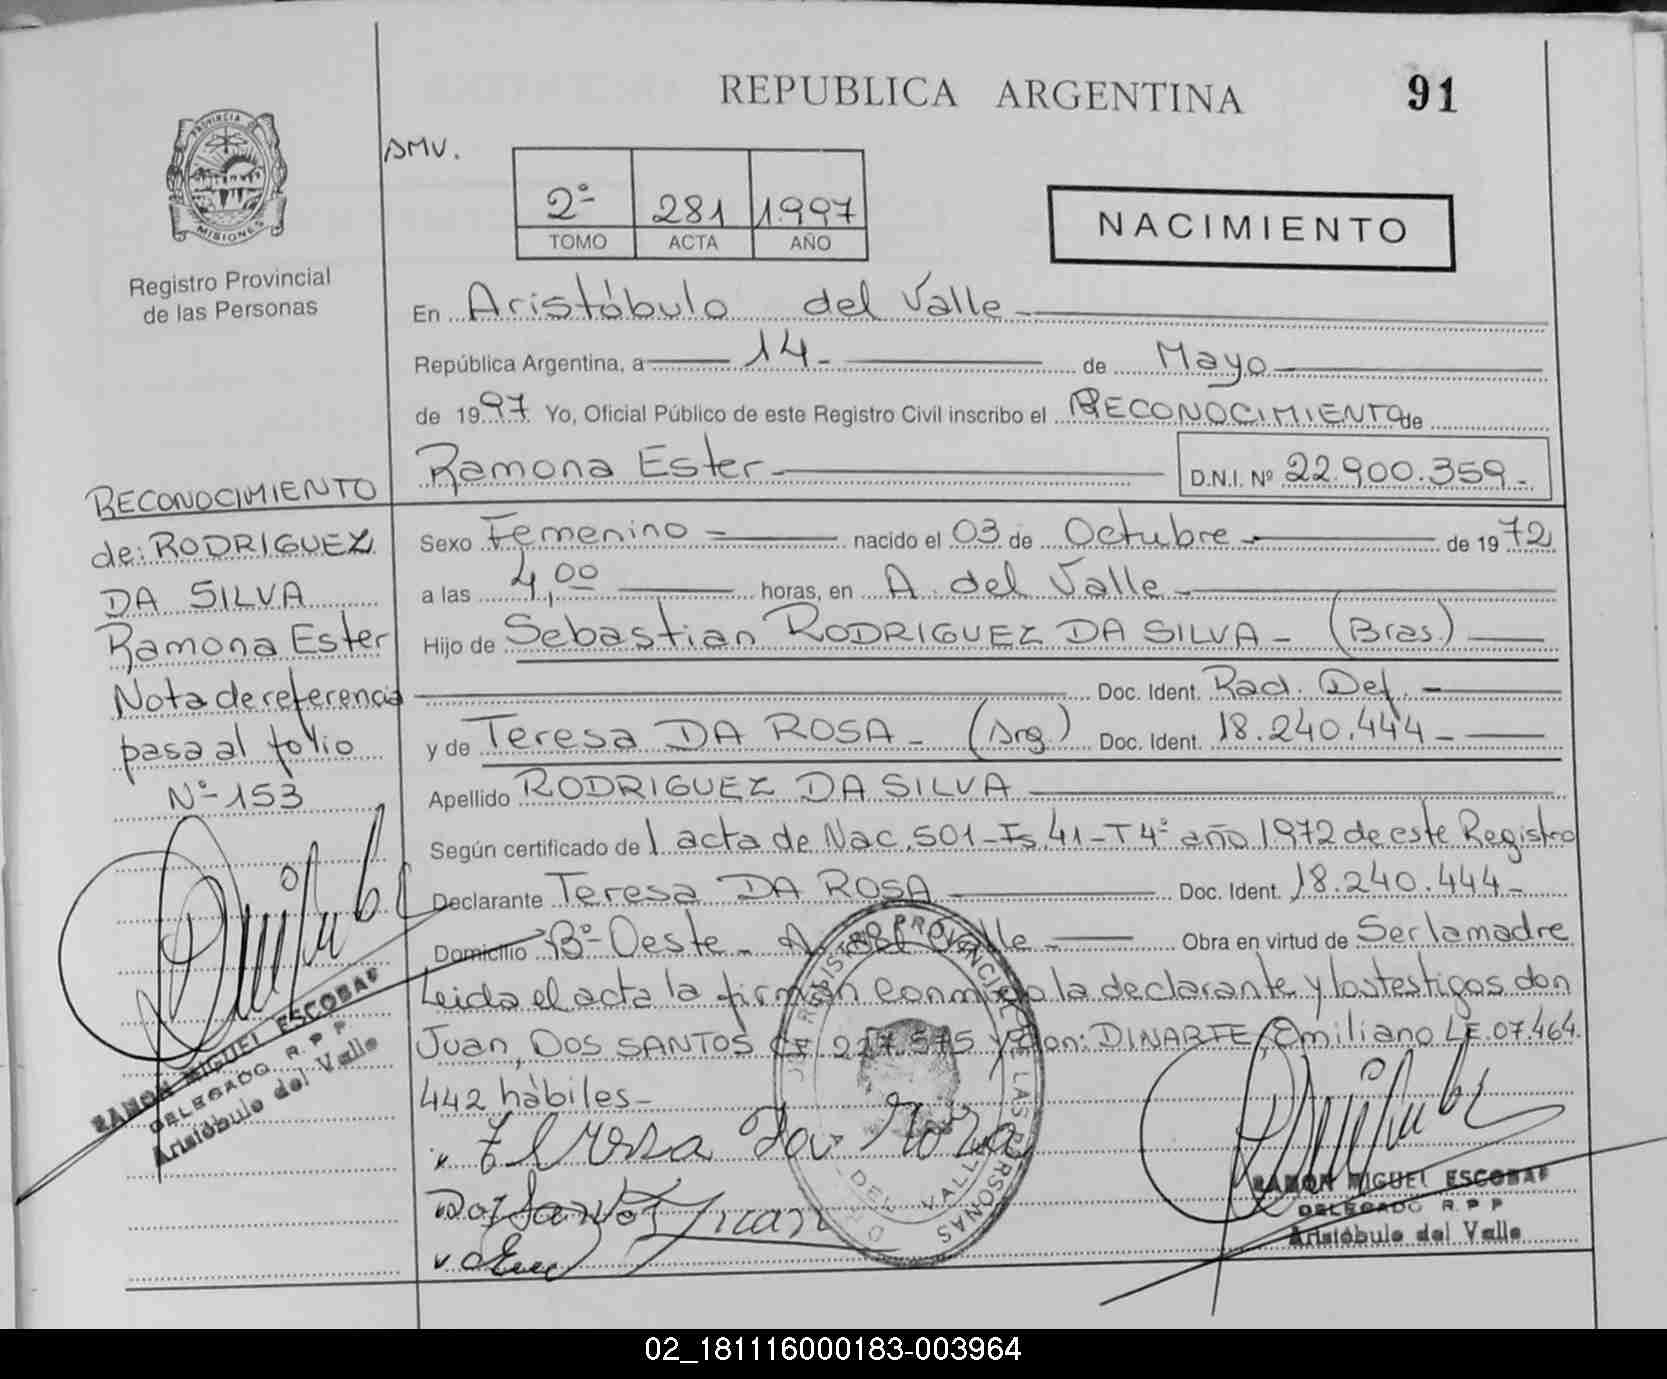 REPUBLICA ARGENTINA 91
PROVINCIA DE
MISIONES
Registro Provincial
de las Personas
SMV.
2º 281 1997
TOMO ACTA AÑO
NACIMIENTO
En Aristóbulo del Valle
República Argentina, a 14 de Mayo
de 1997 Yo, Oficial Público de este Registro Civil inscribo el RECONOCIMIENTO de
Ramona Ester D.N.I. Nº 22.900.359.-
RECONOCIMIENTO
de: RODRIGUEZ
DA SILVA
Ramona Ester
Nota de referencia
pasa al folio
Nº 153
RAMON MIGUEL ESCOBAR
DELEGADO R. P. P
Aristóbulo del Valle
Sexo Femenino nacido el 03 de Octubre de 1972
a las 4,00 horas, en A. del Valle
Hijo de Sebastian RODRIGUEZ DA SILVA - (Bras.)
Doc. Ident. Rad. Def.
y de Teresa DA ROSA - (Arg.) Doc. Ident. 18.240.444
Apellido RODRIGUEZ DA SILVA
Según certificado de l acta de Nac. 501-Fs.41-T4º año 1972 de este Registro
Declarante Teresa DA ROSA Doc. Ident. 18.240.444
Domicilio Bº Oeste - A. del Valle Obra en virtud de Ser la madre
Leida el acta la firman conmigo la declarante y los testigos don
Juan, DOS SANTOS CF. 227.575 y don: DINARTE, Emiliano LE.07.464.
442 hàbiles-
Teresa Da Roza
Dos Santos Juan
REGISTRO PROVINCIAL DE LAS PERSONAS
DEL VALLE
RAMON MIGUEL ESCOBAR
DELEGADO R. P. P
Aristóbulo del Valle
02_181116000183-003964